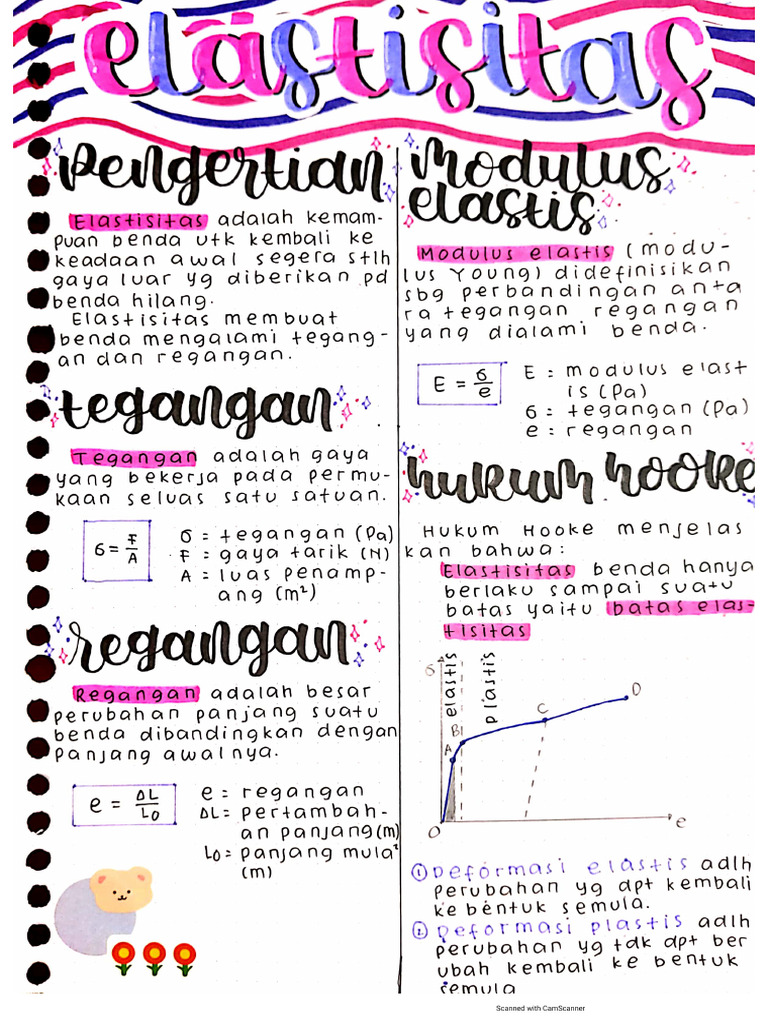 elastisitas
pengertian
Elastisitas adalah kemam-
puan benda utk kembali ke
keadaan awal segera stlh
gaya luar yg diberikan pd
benda hilang.
Elastisitas membuat
benda mengalami tegang-
an dan regangan.
tegangan
Tegangan adalah gaya
yang bekerja pada permu-
kaan seluas satu satuan.
σ = F/A
σ = tegangan (Pa)
F = gaya tarik (N)
A = luas penamp-
ang (m²)
regangan
Regangan adalah besar
perubahan panjang suatu
benda dibandingkan dengan
panjang awalnya.
e = ΔL/L0
e = regangan
ΔL = pertambah-
an panjang (m)
L0 = panjang mula²
(m)
modulus
elastis
Modulus elastis (modu-
lus Young) didefinisikan
sbg perbandingan anta
ra tegangan regangan
yang dialami benda.
E = σ/e
E = modulus elast
is (Pa)
σ = tegangan (Pa)
e = regangan
hukum hooke
Hukum Hooke menjelas
kan bahwa:
Elastisitas benda hanya
berlaku sampai suatu
batas yaitu batas elas-
tisitas
σ
elastis
plastis
A
B
C
D
O
e
① Deformasi elastis adlh
perubahan yg dpt kembali
ke bentuk semula.
② Deformasi plastis adlh
perubahan yg tdk dpt ber
ubah kembali ke bentuk
semula
Scanned with CamScanner